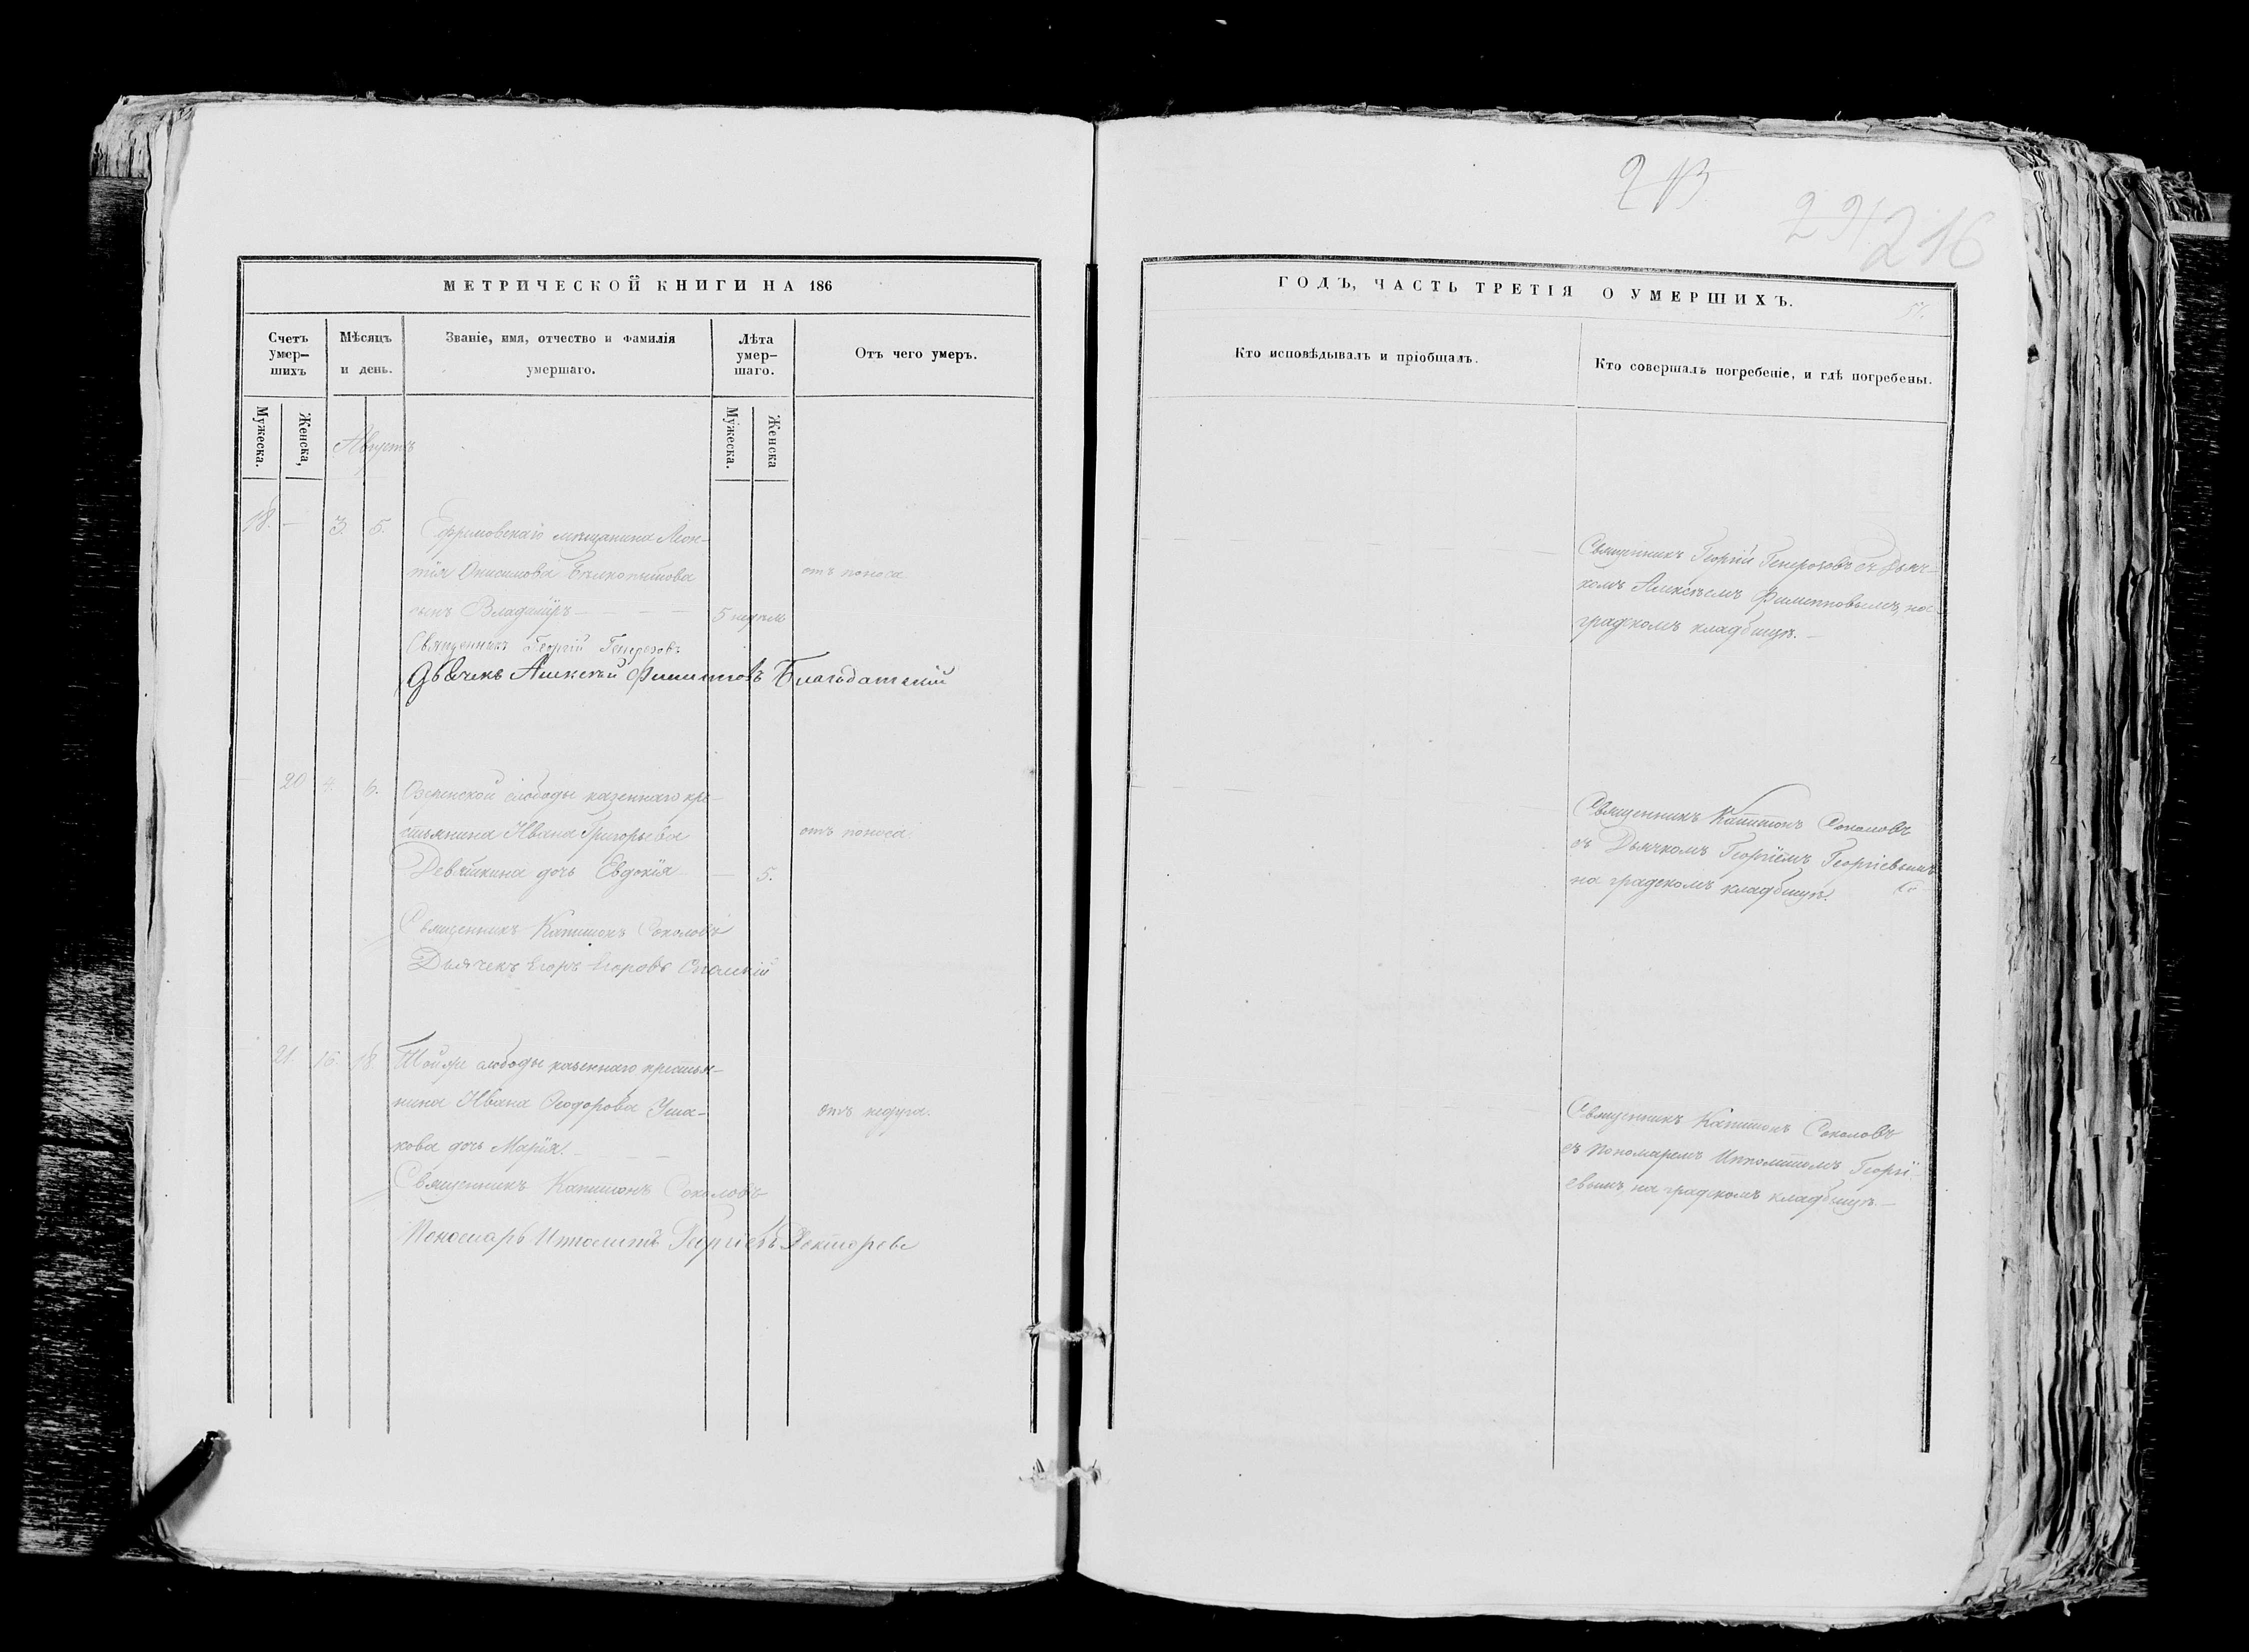 213.
291 216
МЕТРИЧЕСКОЙ КНИГИ НА 186
ГОДЪ, ЧАСТЬ ТРЕТІЯ О УМЕРШИХЪ.
57.
Счетъ умер–шихъ
Мѣсяцъ и день.
Званіе, имя, отчество и фамилія умершаго.
Лѣта умер–шаго.
Отъ чего умеръ.
Кто исповѣдывалъ и пріобщалъ.
Кто совершалъ погребеніе, и гдѣ погребены.
Мужеска.
Женска,
Мужеска.
Женска
Августъ
18. – 3. 5. Ефремовскаго мѣщанина Леон–
тія Онисимова Бѣлкопытова
отъ поноса
сынъ Владиміръ
5 недѣль
Священникъ Георгій Генерозовъ
Дьячекъ Алексѣй Филипповъ Благодатскій
Священникъ Георгій Генерозовъ съ Дьяч–
комъ Алексѣемъ Филипповымъ, на
градскомъ кладбищѣ.
20 4. 6. слободы казеннаго кре–
стьянина Ивана Григорьева
отъ поноса
Девяткина дочь Евдокія – 5.
Священникъ Капитонъ Соколовъ
Дьячекъ Егоръ Егоровъ Спасскій
Священникъ Капитонъ Соколовъ
съ Дьячкомъ Георгіемъ Георгіевымъ
на градскомъ кладбищѣ.
21 16. 18. Той же слободы казеннаго крестья–
нина Ивана Ѳеодорова Уша–
отъ недуга.
кова дочь Марія.
Священникъ Капитонъ Соколовъ
Пономарь Ипполитъ Георгіевъ
Священникъ Капитонъ Соколовъ
съ Пономаремъ Ипполитомъ Георгі
евымъ, на градскомъ кладбищѣ. –